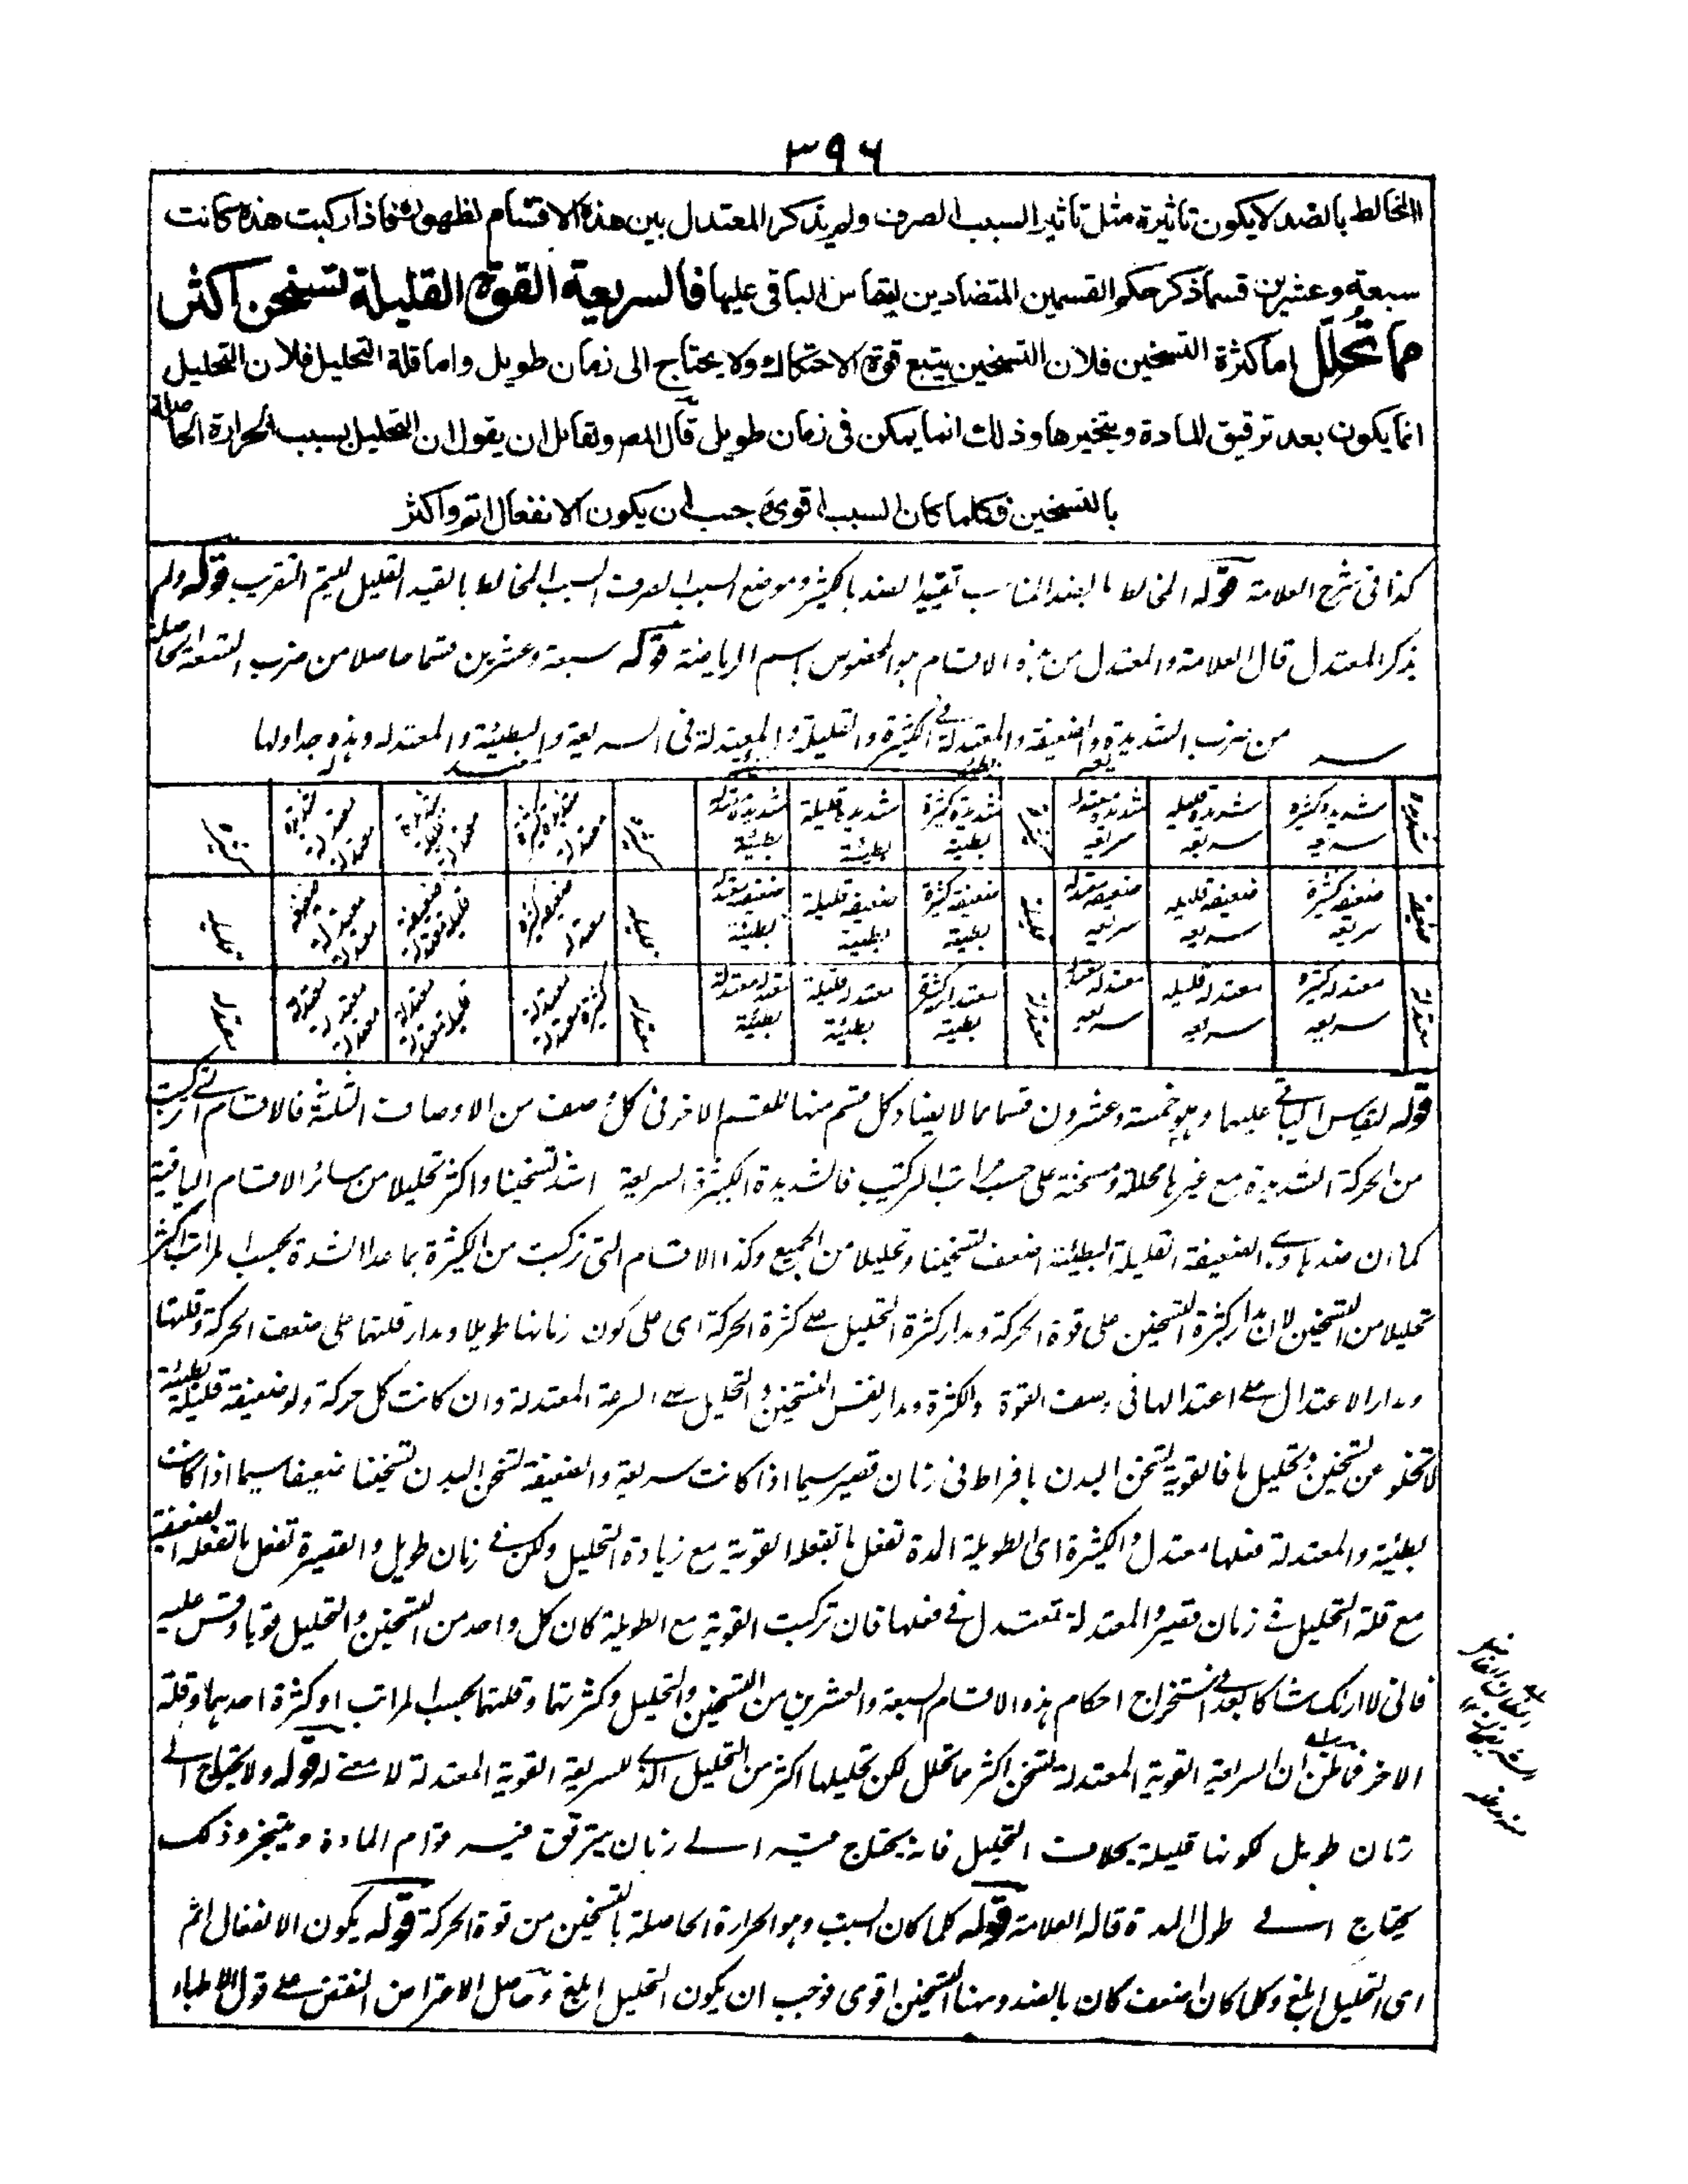 ٣٩٦
المخالط بالضد لا يكون تاثيرة مثل تاثير السبب الصرف ولم يذكر المعتدل بين هذه الاقسام لظهوره فاذا ركبت هذه كانت
سبعة وعشرين قسما ذكر حكم القسمين المتضادين ليقاس الباقي عليها فالسريعة القوة القليلة تسخن اكثر
مما تُحلّل اما كثرة التسخين فلان التسخين يتبع قوة الاحتكاك ولا يحتاج الى زمان طويل واما قلة التحليل فلان التحليل
انما يكون بعد ترقيق المادة وتبخيرها وذلك انما يمكن فى زمان طويل قال المص ولقائل ان يقول ان التحليل بسبب الحرارة الحاصلة
بالتسخين فكلما كان السبب اقوى وجب ان يكون الانفعال اتم واكثر
كذا فى شرح العلامة قوله المخالط بالضد المناسب تقييد الضد بالكثير وموضع السبب الصرف السبب المخالط بالقيد القليل ليتم التقريب قوله ولم
يذكر المعتدل قال العلامة والمعتدل من هذه الاقسام هو المخصوص باسم الرياضة قوله سبعة وعشرين قسما حاصلا من ضرب التسعة الحاصلة
من ضرب الشديدة والضعيفة والمعتدلة فى الكثيرة والقليلة والمعتدلة فى السريعة والبطيئة والمعتدلة وهذه جداولها
شديدة | شديدة كثيرة سريعة | شديدة قليلة سريعة | شديدة معتدلة سريعة | شديدة | شديدة كثيرة بطيئة | شديدة قليلة بطيئة | شديدة معتدلة بطيئة
ضعيفة | ضعيفة كثيرة سريعة | ضعيفة قليلة سريعة | ضعيفة معتدلة سريعة | ضعيفة كثيرة بطيئة | ضعيفة قليلة بطيئة | ضعيفة معتدلة بطيئة | ضعيفة كثيرة معتدلة | ضعيفة قليلة معتدلة
معتدلة | معتدلة كثيرة سريعة | معتدلة قليلة سريعة | معتدلة معتدلة سريعة | معتدلة | معتدلة كثيرة بطيئة | معتدلة قليلة بطيئة | معتدلة معتدلة بطيئة | معتدلة | معتدلة كثيرة معتدلة | معتدلة قليلة معتدلة | معتدلة معتدلة معتدلة | معتدلة
قوله ليقاس الباقي عليها وهو خمسة وعشرون قسما مما لا يضاد كل قسم منها للقسم الاخر فى كل وصف من الاوصاف الثلثة فالاقسام التى تركبت
من الحركة الشديدة مع غيرها محللة ومسخنة على حسب مراتب التركيب فالشديدة الكثيرة السريعة اشد تسخينا واكثر تحليلا من سائر الاقسام الباقية
كما ان ضدها وهى الضعيفة القليلة البطيئة اضعف تسخينا وتحليلا من الجميع وكذا الاقسام التى تركبت من الكثيرة بما عدا الشدة بحسب المراتب اكثر
تحليلا من التسخين لان مدار كثرة التسخين على قوة الحركة ومدار كثرة التحليل على كثرة الحركة اى على كون زمانها طويلا ومدار قلتهما على ضعف الحركة وقلتها
ومدار الاعتدال على اعتدالها فى وصف القوة والكثرة ومدار نفس التسخين والتحليل على السرعة المعتدلة وان كانت كل حركة ولو ضعيفة قليلة بطيئة
لا تخلو عن تسخين وتحليل ما فالقوية تسخن البدن بافراط فى زمان قصير سيما اذا كانت سريعة والضعيفة تسخن البدن تسخينا ضعيفا سيما اذا كانت
بطيئة والمعتدلة فعلها معتدل والكثيرة اى الطويلة المدة تفعل ما تفعله القوية مع زيادة التحليل ولكن فى زمان طويل والقصيرة تفعل ما تفعله الضعيفة
مع قلة التحليل فى زمان قصير والمعتدلة تعتدل فى فعلها فان تركبت القوية مع الطويلة كان كل واحد من التسخين والتحليل قويا وقس عليه
فانى لا اراك شاكا بعد فى استخراج احكام هذه الاقسام السبعة والعشرين من التسخين والتحليل وكثرتهما وقلتهما بحسب المراتب او كثرة احدهما وقلة
الاخر فما ظن ان السريعة القوية المعتدلة تسخن اكثر مما تحلل لكن تحليلها اكثر من التحليل الذى للسريعة القوية المعتدلة لا معنى له قوله ولا يحتاج الى
زمان طويل لكونها قليلة بخلاف التحليل فانه يحتاج فيه الى زمان يترقق فيه قوام المادة ويتبخر وذلك
يحتاج الى طول المدة قاله العلامة قوله كلما كان السبب وهو الحرارة الحاصلة بالتسخين من قوة الحركة قوله يكون الانفعال اتم
اى التحليل ابلغ وكلما كان اضعف كان بالضد وههنا التسخين اقوى فوجب ان يكون التحليل ابلغ وحاصل الاعتراض النقض على قول الاطباء